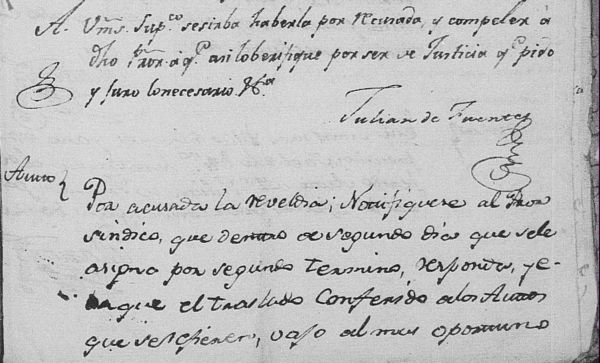 A. Vms. Supco. se sirba haberla por recusada, y compeler â
dho Pror. â qe. asi lo berifique por ser de Justicia qe. pido
y juro lo necesario. &a.
Julian de Fuentes
Autto
Por acusada la reveldia; Notifiquese al Pror
sindico, que dentro de segundo dia que sele
asigna por segundo termino, responda, y e-
que el traslado Conferido alos Auttos
que se refieren, vajo al mas oportuno